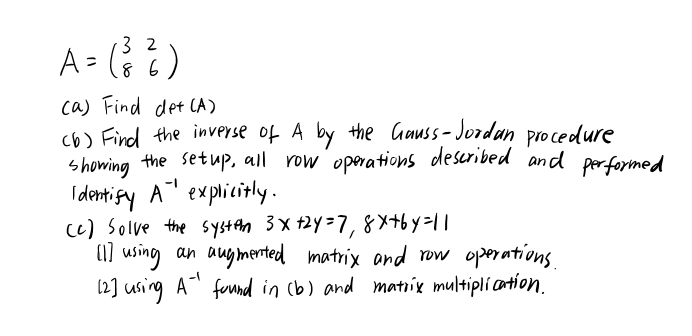 A = (3 2
8 6)
(a) Find det (A)
(b) Find the inverse of A by the Gauss-Jordan procedure
showing the setup, all row operations described and performed
Identify A⁻¹ explicitly.
(c) Solve the system 3x+2y=7, 8x+6y=11
[1] using an augmented matrix and row operations.
[2] using A⁻¹ found in (b) and matrix multiplication.